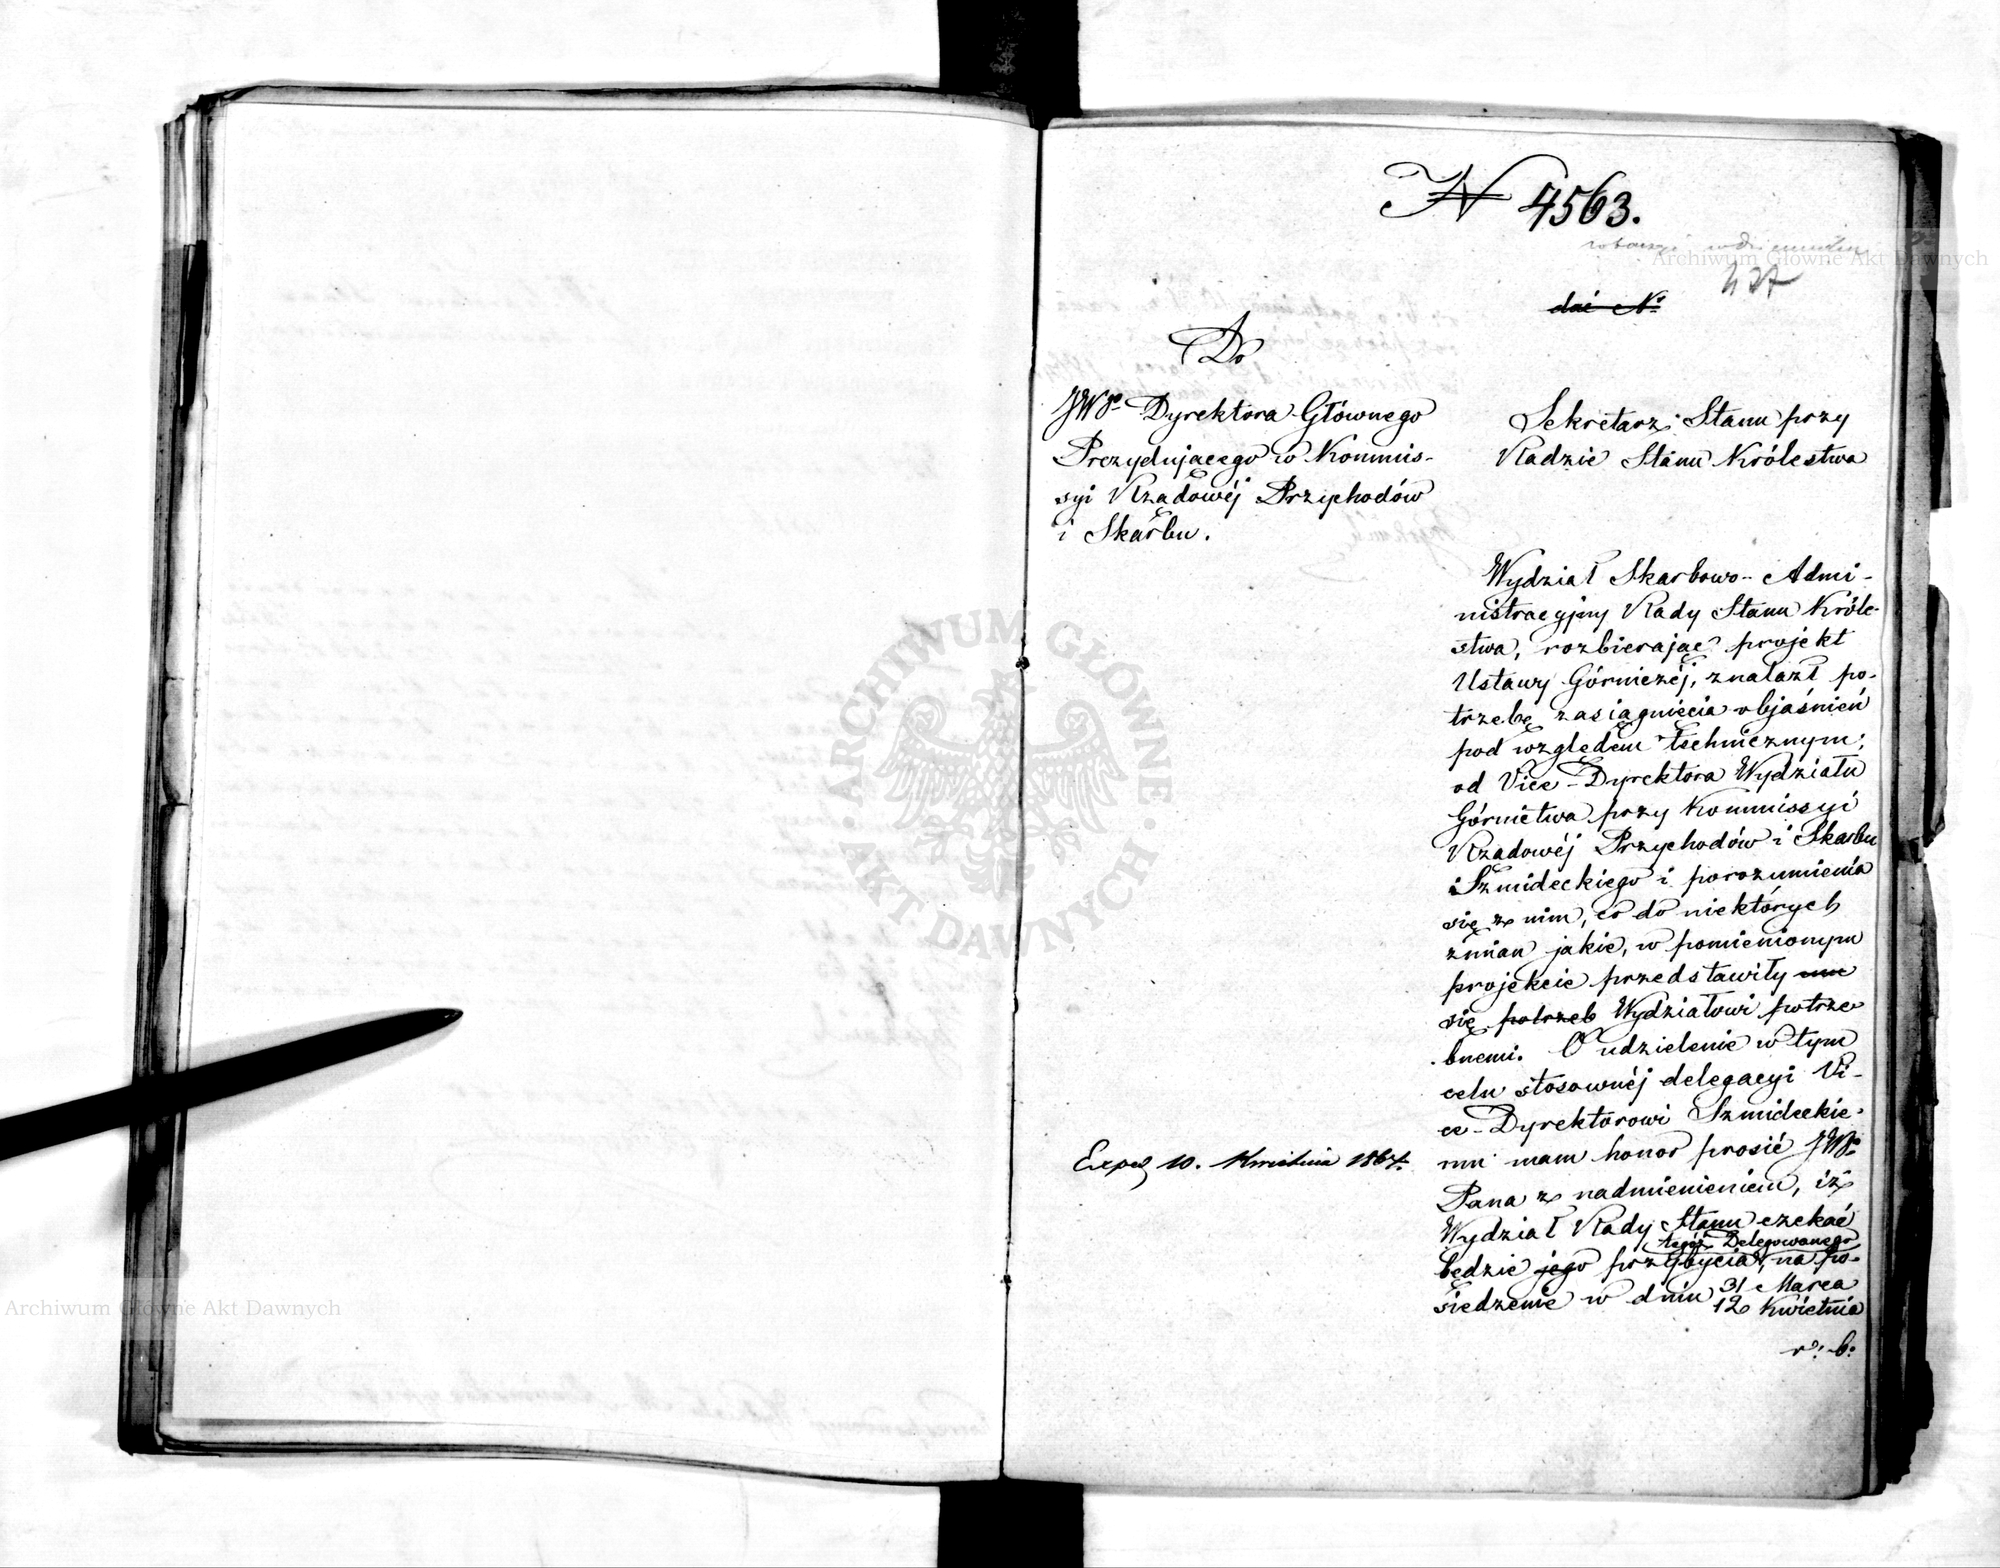 N 4563.
437
dać N:
Do
JWgo Dyrektora Głównego
Prezydującego w Kommis-
syi Rządowéj Przychodów
i Skarbu.
Sekretarz Stanu przy
Radzie Stanu Królestwa
Wydział Skarbowo-Admi-
nistracyjny Rady Stanu Króle-
stwa, rozbierając projekt
Ustawy Górniczéj, znalazł po-
trzebę zasiągnięcia objaśnień
pod względem technicznym,
od Vice-Dyrektora Wydziału
Górnictwa przy Kommissyi
Rządowéj Przychodów i Skarbu
Szmideckiego i porozumienia
się z nim, co do niektórych
zmian jakie, w pomienionym
projekcie przedstawiły mu
się potrzeb Wydziałowi potrze
bnemi. O udzielenie w tym
celu stosownéj delegacyi Vi-
ce-Dyrektorowi Szmideckie-
mu mam honor prosić JWgo
Pana z nadmienieniem, iż
Wydział Rady Stanu czekać
tegoż Delegowanego
będzie jego przybycia, na po-
siedzenie w dniu 31 Marca
12 Kwietnia
r. b.
Exped 10. Kwietnia 1864.
ARCHIWUM GŁÓWNE AKT DAWNYCH
Archiwum Główne Akt Dawnych
Archiwum Główne Akt Dawnych